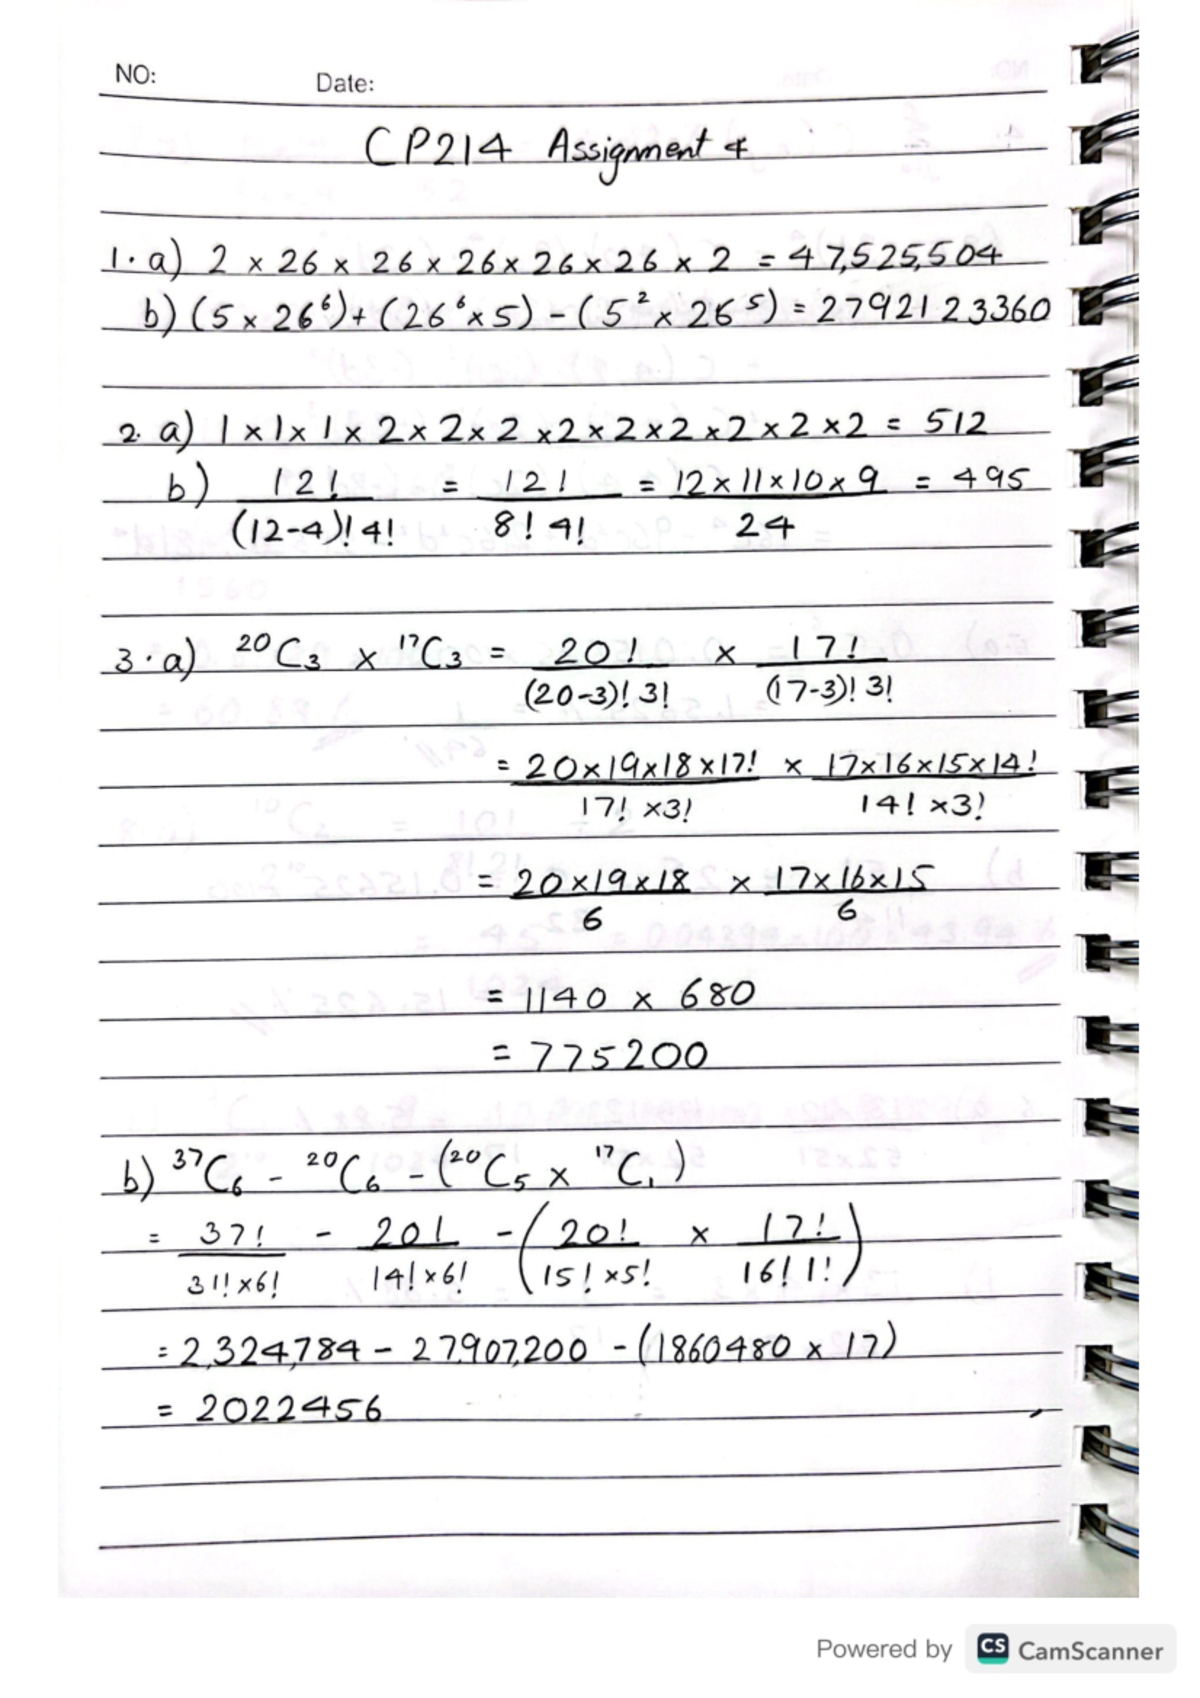 NO:
Date:
CP214 Assignment 4
1. a) 2 × 26 × 26 × 26 × 26 × 26 × 2 = 47,525,504
b) (5 × 26⁶) + (26⁶ × 5) - (5² × 26⁵) = 2792123360
2. a) 1 × 1 × 1 × 2 × 2 × 2 × 2 × 2 × 2 × 2 × 2 × 2 = 512
b) 12! / (12-4)! 4! = 12! / 8! 4! = 12 × 11 × 10 × 9 / 24 = 495
3. a) ²⁰C₃ × ¹⁷C₃ = 20! / (20-3)! 3! × 17! / (17-3)! 3!
= 20×19×18×17! / 17! ×3! × 17×16×15×14! / 14! ×3!
= 20×19×18 / 6 × 17×16×15 / 6
= 1140 × 680
= 775200
b) ³⁷C₆ - ²⁰C₆ - (²⁰C₅ × ¹⁷C₁)
= 37! / 31! ×6! - 20! / 14! ×6! - (20! / 15! ×5! × 17! / 16! 1!)
= 2,324,784 - 27,907,200 - (1860480 × 17)
= 2022456
Powered by CS CamScanner